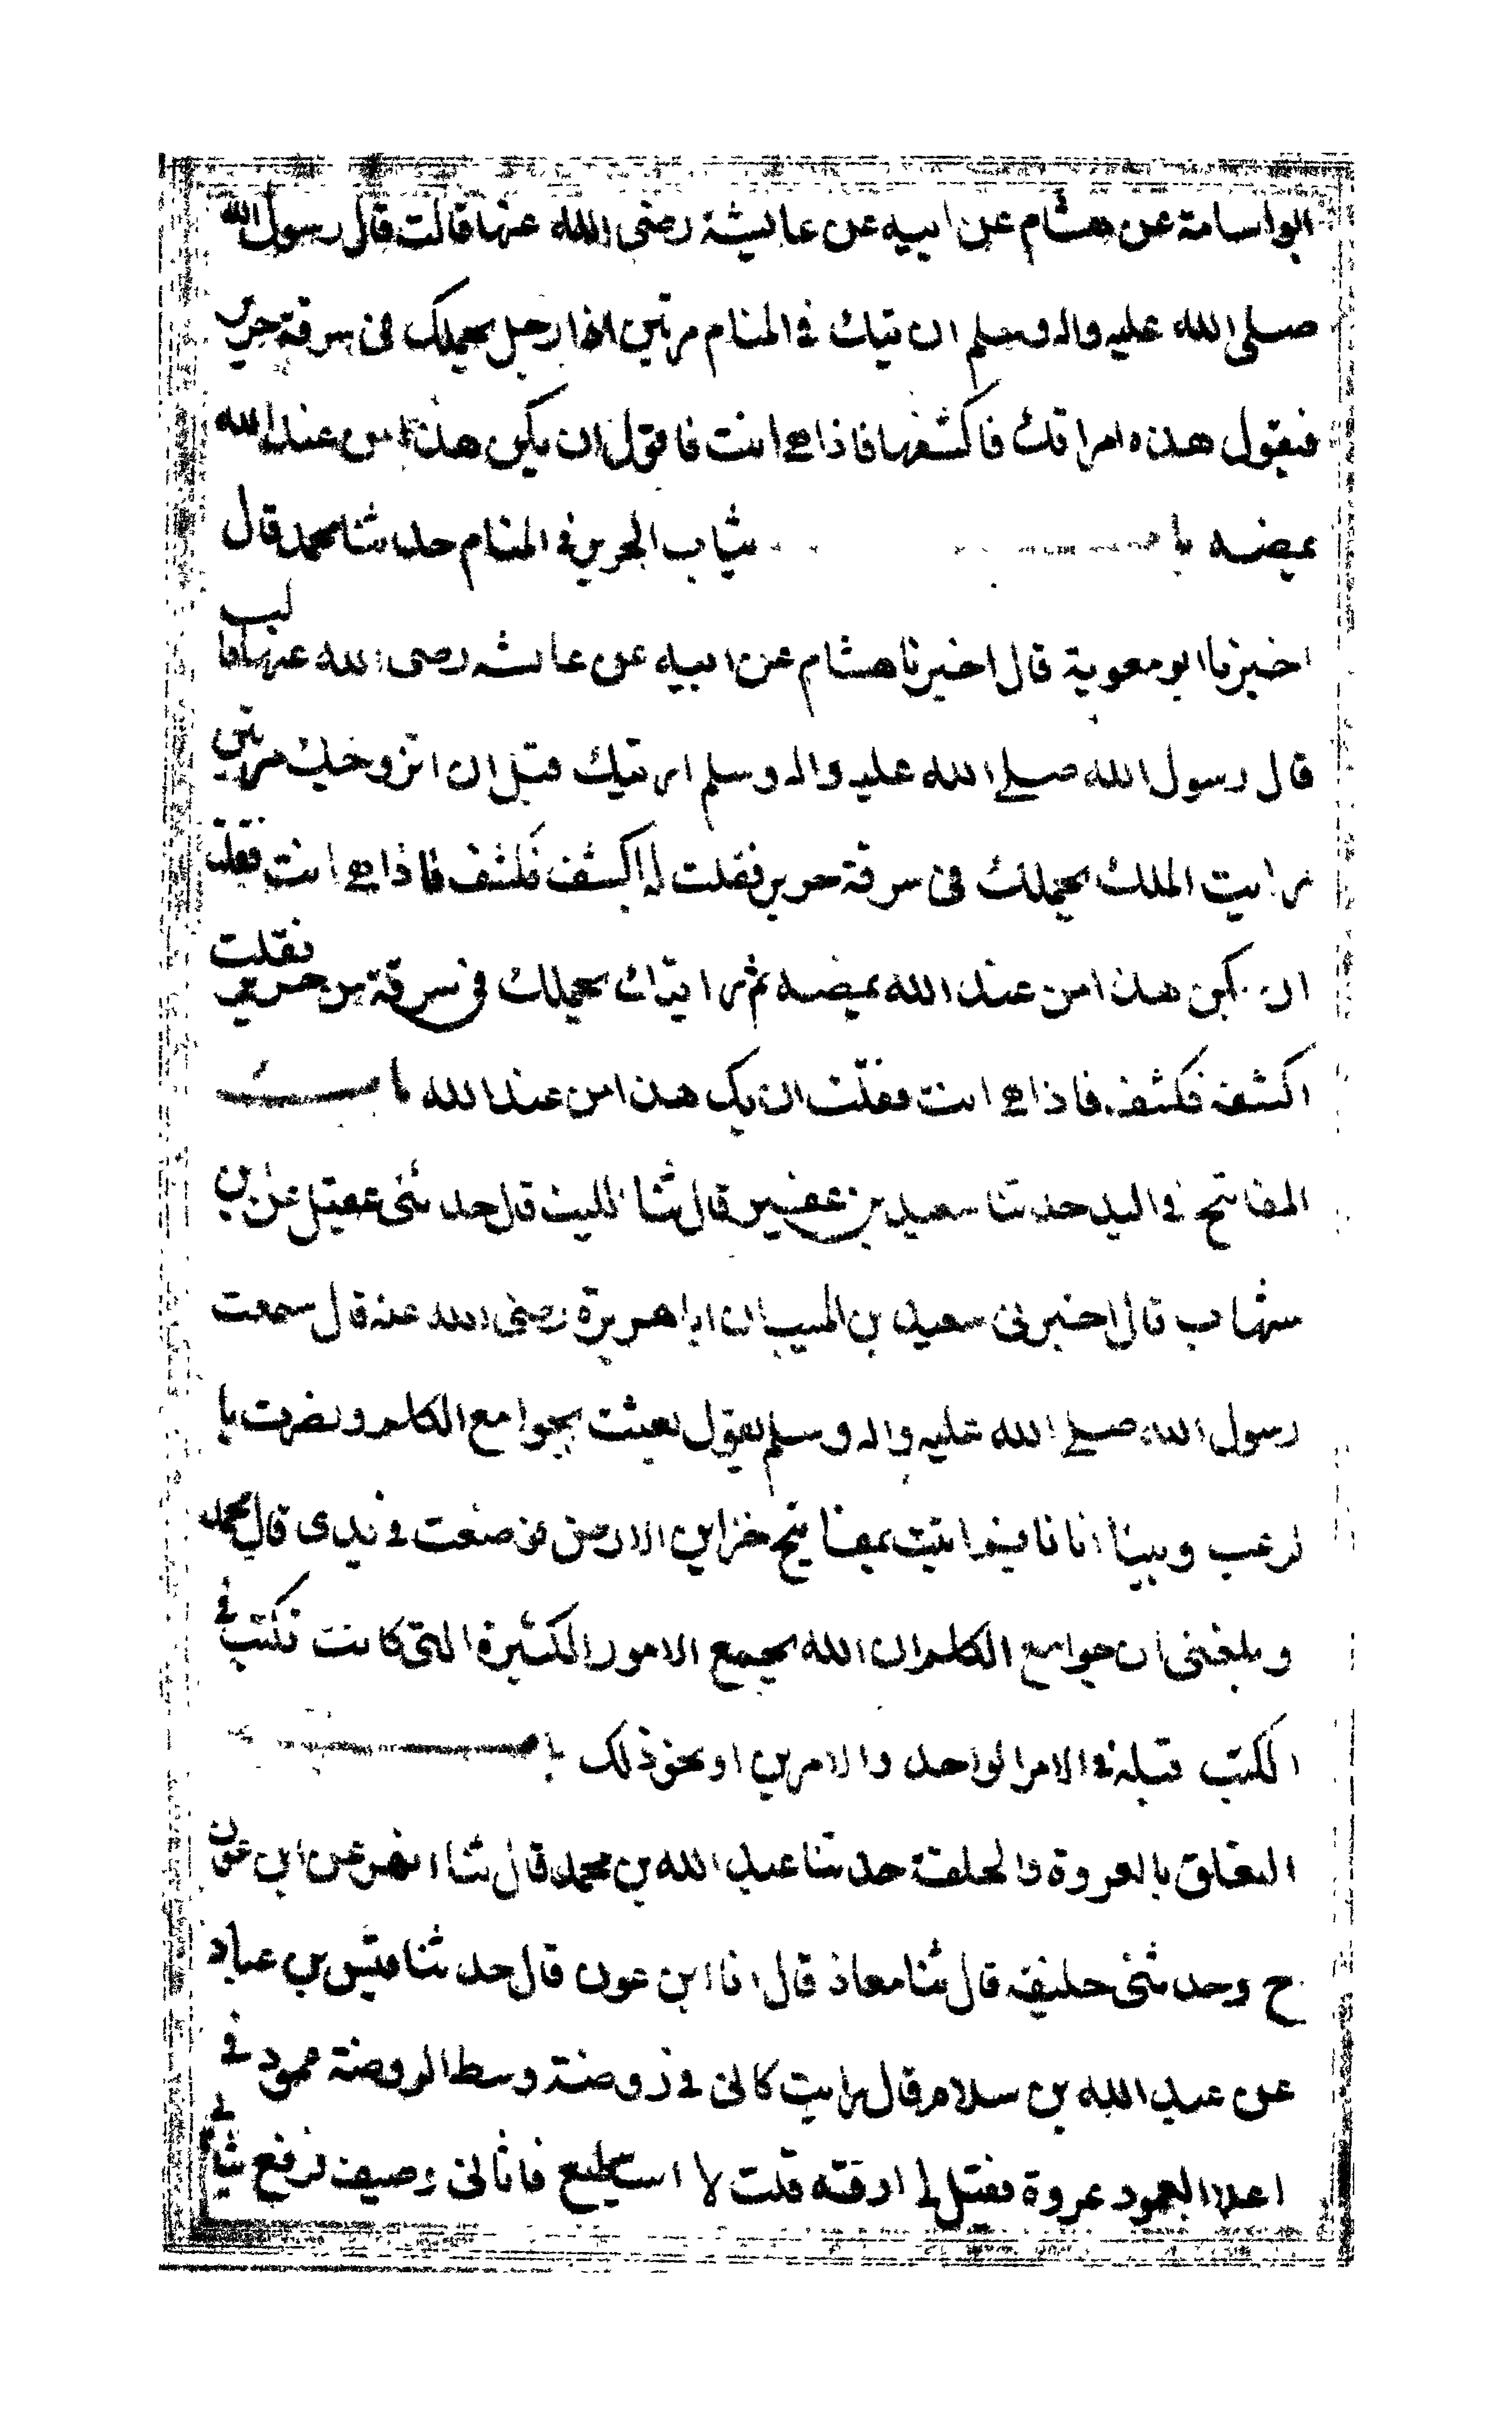 ابواسامة عن هشام عن ابيه عن عايشة رضى الله عنها قالت قال رسول الله
صلى الله عليه واله وسلم اريتك في المنام مرتين اذا رجل يحملك فى سرقة حرير
فيقول هذه امراتك فاكشفها فاذا هى انت فاقول ان يكن هذا من عند الله
يمضه باب ثياب الحرير في المنام حدثنا محمد قال
اخبرنا ابو معوية قال اخبرنا هشام عن ابيه عن عايشه رضى الله عنها قالت
قال رسول الله صلى الله عليه واله وسلم اريتك قبل ان اتزوجك مرتين
رايت الملك يحملك فى سرقة حرير فقلت له اكشف فكشف فاذا هى انت فقلت
ان يكن هذا من عند الله يمضه ثم رايتك يحملك فى سرقة من حرير فقلت
اكشف فكشف فاذا هى انت فقلت ان يك هذا من عند الله باب
المفاتيح في اليد حدثنا سعيد بن عفير قال ثنا الليث قال حدثنى عقيل عن بن
شهاب قال اخبرنى سعيد بن المسيب ان ابا هريرة رضى الله عنه قال سمعت
رسول الله صلى الله عليه واله وسلم يقول بعثت بجوامع الكلم ونصرت با
لرعب وبينا انا نايم اتيت بمفاتيح خزاين الارض فوضعت في يدى قال محمد
وبلغنى ان جوامع الكلم ان الله يجمع الامور الكثيرة التى كانت تكتب في
الكتب قبله في الامر الواحد والامرين او نحو ذلك باب
التعلق بالعروة والحلقة حدثنا عبد الله بن محمد قال ثنا ازهر عن ابن عون
ح وحدثنى خليفة قال ثنا معاذ قال انا ابن عون قال حدثنا قيس بن عباد
عن عبد الله بن سلام قال رايت كانى في روضة وسط الروضة عمود في
اعلا العمود عروة فقيل لى ارقه قلت لا استطيع فاتانى وصيف فرفع ثيابى